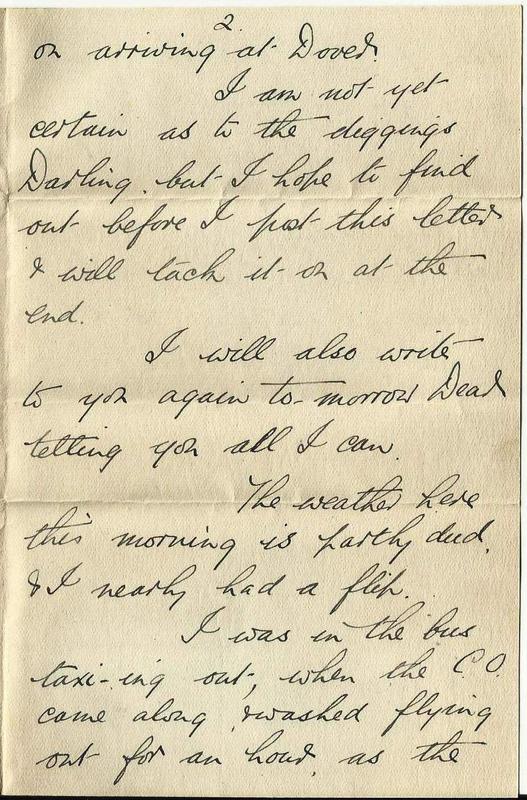 2
on arriving at Dover.
I am not yet
certain as to the diggings
Darling. but I hope to find
out before I post this letter
& will tack it on at the
end.
I will also write
to you again to-morrow Dear
telling you all I can.
The weather here
this morning is partly dud,
& I nearly had a flip.
I was in the bus
taxi-ing out, when the C.O.
came along, & washed flying
out for an hour, as the